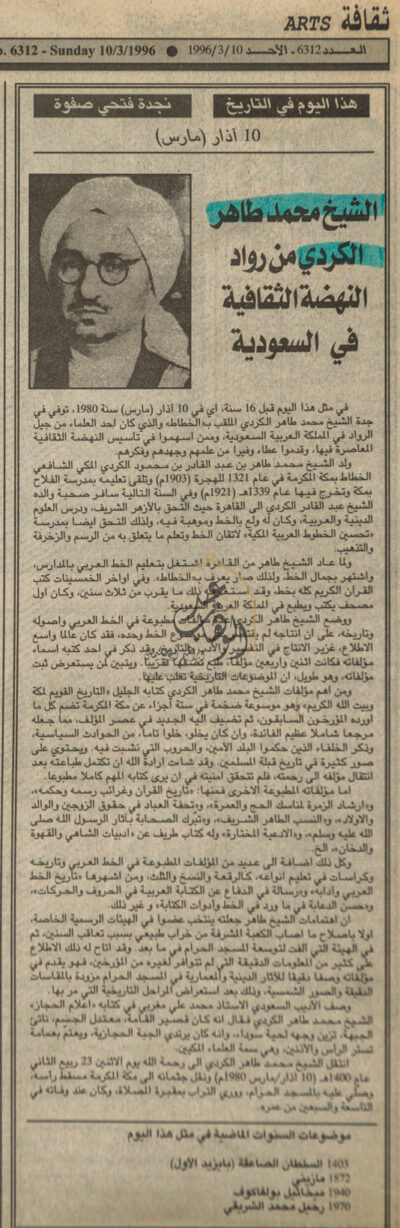 ثقافة ARTS
o. 6312 - Sunday 10/3/1996 ● العـدد 6312 ـ الأحـد 1996/3/10
هذا اليوم في التاريخ نجدة فتحي صفوة
10 آذار (مارس)
الشيخ محمد طاهر
الكردي من رواد
النهضة الثقافية
في السعودية
في مثل هذا اليوم قبل 16 سنة، اي في 10 آذار (مارس) سنة 1980، توفي في
جدة الشيخ محمد طاهر الكردي الملقب بـ«الخطاط» والذي كان احد العلماء من جيل
الرواد في المملكة العربية السعودية، وممن اسهموا في تأسيس النهضة الثقافية
المعاصرة فيها، وقدموا عطاء وفيرا من علمهم وجهدهم وفكرهم.
ولد الشيخ محمد طاهر بن عبد القادر بن محمود الكردي المكي الشافعي
الخطاط بمكة المكرمة في عام 1321 للهجرة (1903م) وتلقى تعليمه بمدرسة الفلاح
بمكة وتخرج فيها عام 1339هـ (1921م) وفي السنة التالية سافر صحبة والده
الشيخ عبد القادر الكردي الى القاهرة حيث التحق بالأزهر الشريف، ودرس العلوم
الدينية والعربية، وكان له ولع بالخط وموهبة فيه، ولذلك التحق ايضا بمدرسة
«تحسين الخطوط العربية المكية» لاتقان الخط وتعلم ما يتعلق به من الرسم والزخرفة
والتذهيب.
ولما عاد الشيخ طاهر من القاهرة اشتغل بتعليم الخط العربي بالمدارس،
واشتهر بجمال الخط، ولذلك صار يعرف بـ«الخطاط». وفي اواخر الخمسينات كتب
القرآن الكريم كله بخطه، وقد استغرق ذلك ما يقرب من ثلاث سنين، وكان اول
مصحف يكتب ويطبع في المملكة العربية السعودية.
ووضع الشيخ طاهر الكردي مؤلفات مطبوعة في الخط العربي واصوله
وتاريخه، على ان انتاجه لم موضوع الخط وحده، فقد كان عالما واسع
الاطلاع، غزير الانتاج في التفسير والأدب والتاريخ وقد ذكر في احد كتبه اسماء
مؤلفاته فكانت اثنين واربعين مؤلفا، طبع نصفها تقريبا. ويتبين لمن يستعرض ثبت
مؤلفاته، وهو طويل، ان الموضوعات التاريخية تغلب عليها.
ومن اهم مؤلفات الشيخ محمد طاهر الكردي كتابه الجليل «التاريخ القويم لمكة
وبيت الله الكريم» وهو موسوعة ضخمة في ستة أجزاء عن مكة المكرمة تضم كل ما
اورده المؤرخون السابقون، ثم تضيف اليه الجديد في عصر المؤلف، مما جعله
مرجعا شاملا عظيم الفائدة، وان كان يخلو، خلوا تاما، من الحوادث السياسية،
وذكر الخلفاء الذين حكموا البلد الأمين، والحروب التي نشبت فيه. ويحتوي على
صور كثيرة في تاريخ قبلة المسلمين. وقد شاءت ارادة الله ان تكتمل طباعته بعد
انتقال مؤلفه الى رحمته، فلم تتحقق امنيته في ان يرى كتابه المهم كاملا مطبوعا.
اما مؤلفاته المطبوعة الاخرى فمنها: «تاريخ القرآن وغرائب رسمه وحكمه»،
و«ارشاد الزمرة لمناسك الحج والعمرة»، و«تحفة العباد في حقوق الزوجين والوالد
والاولاد»، و«النسب الطاهر الشريف»، و«تبرك الصحابة بآثار الرسول الله صلى
الله عليه وسلم»، و«الادعية المختارة»، وله كتاب طريف عن «ادبيات الشاهي والقهوة
والدخان»، الخ.
وكل ذلك اضافة الى عديد من المؤلفات المطبوعة في الخط العربي وتاريخه
وكراسات في تعليم انواعه، كالرقعة والنسخ والثلث، ومن اشهرها «تاريخ الخط
العربي وآدابه» و«رسالة في الدفاع عن الكتابة العربية في الحروف والحركات»،
و«حسن الدعابة في ما ورد في الخط وأدوات الكتابة» و غير ذلك.
ان اهتمامات الشيخ طاهر جعلته ينتخب عضوا في الهيئات الرسمية الخاصة،
اولا باصلاح ما اصاب الكعبة المشرفة من خراب طبيعي بسبب تعاقب السنين، ثم
في الهيئة التي الفت لتوسعة المسجد الحرام في ما بعد. وقد اتاح له ذلك الاطلاع
على كثير من المعلومات الدقيقة التي لم تتوافر لغيره من المؤرخين، فهو يقدم في
مؤلفاته وصفا دقيقا للآثار الدينية والمعمارية في المسجد الحرام مزودة بالمقاسات
الدقيقة والصور الشمسية، وذلك بعد استعراض المراحل التاريخية التي مر بها.
وصف الأديب السعودي الاستاذ محمد علي مغربي في كتابه «اعلام الحجاز»
الشيخ محمد طاهر الكردي فقال انه كان قصير القامة، معتدل الجسم، ناتئ
الجبهة، تزين وجهه لحية سوداء، وانه كان يرتدي الجبة الحجازية، ويعتم بعمامة
تستر الرأس والأذنين، وهي سمة العلماء المكيين.
انتقل الشيخ محمد طاهر الكردي الى رحمة الله يوم الاثنين 23 ربيع الثاني
عام 1400هـ (10 آذار/مارس 1980م) ونقل جثمانه الى مكة المكرمة مسقط رأسه،
وصلي عليه بالمسجد الحرام، ووري التراب بمقبرة المعلاة، وكان عند وفاته في
التاسعة والسبعين من عمره.
موضوعات السنوات الماضية في مثل هذا اليوم
1403 السلطان الصاعقة (بايزيد الأول)
1872 مازيني
1940 ميخائيل بولغاكوف
1970 رحيل محمد الشريقي